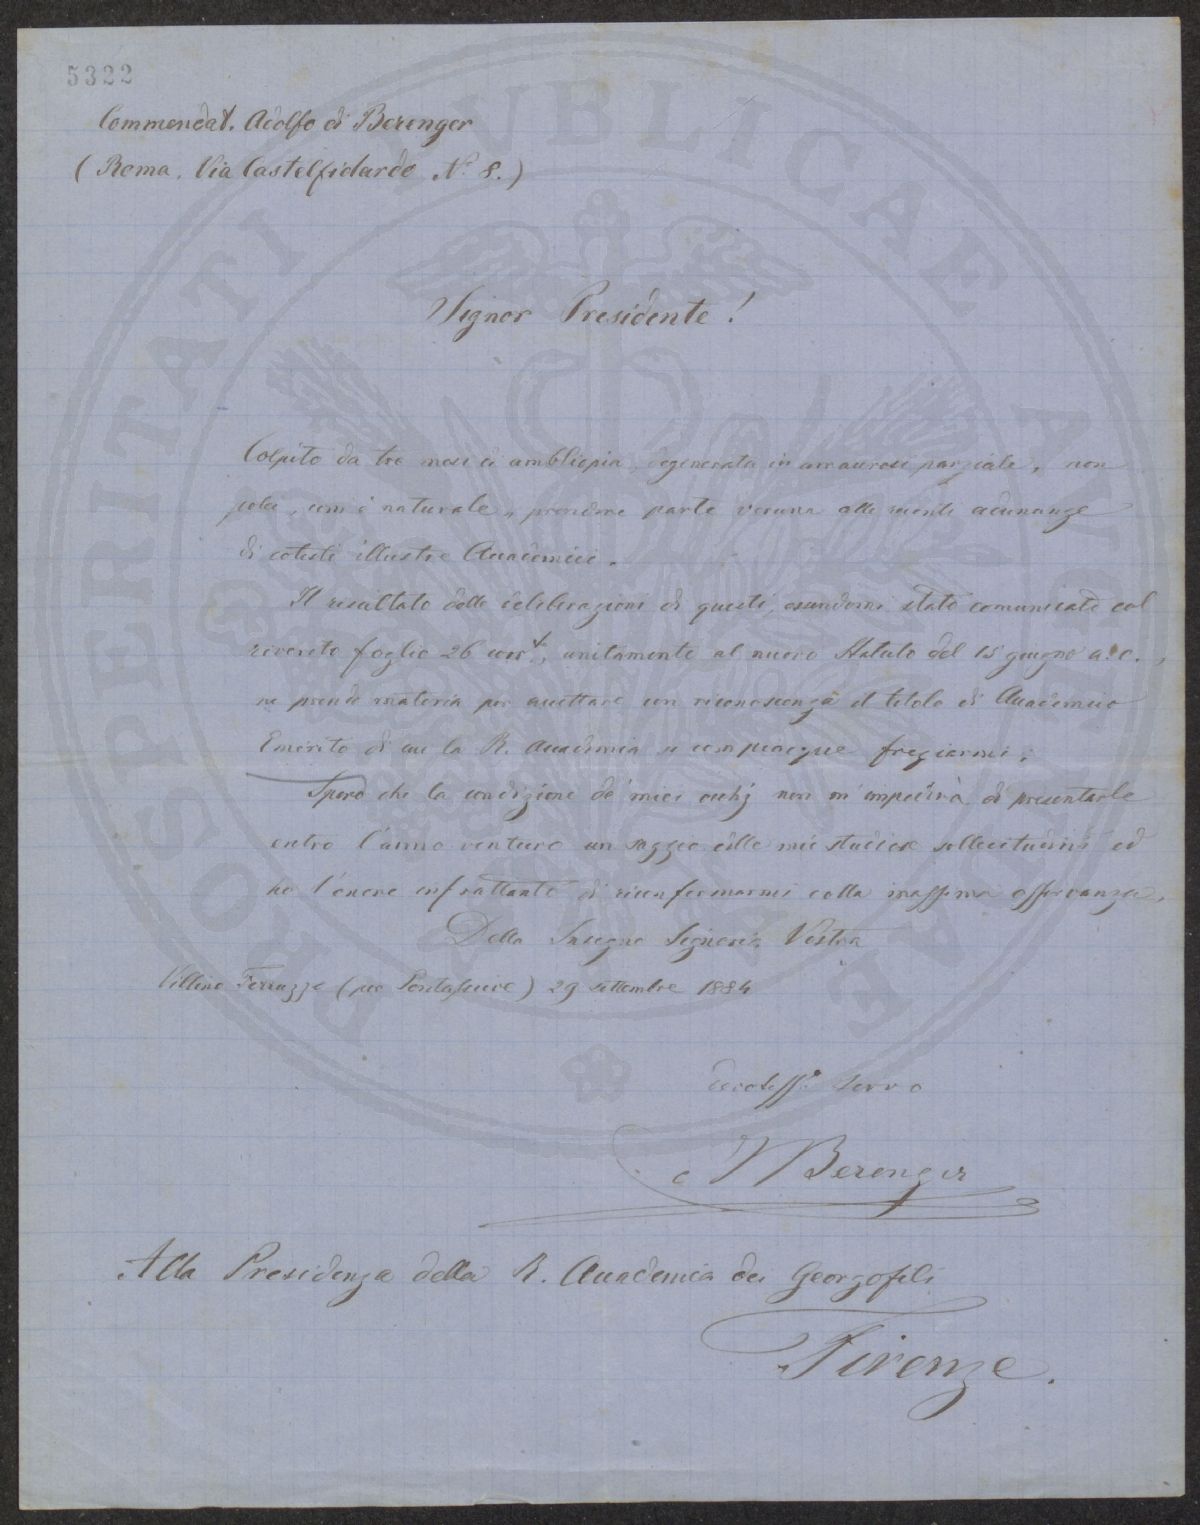 5322
Commendat. Adolfo di Berenger
(Roma. Via Castelfidardo N.° 8.)
Signor Presidente!
Colpito da tre mesi di ambliopia, degenerata in amaurosi parziale, non
potei, com'è naturale, prendere parte veruna alle recenti adunanze
di cotesti illustri Accademici.
Il resultato delle deliberazioni di questi, essendomi stato comunicato col
reverito foglio 26 corr.t, unitamente al nuovo Statuto del 15 giugno a. c.,
ne prendo materia per accettare con riconoscenza il titolo di Accademico
Emerito di cui la R. Accademia si compiacque fregiarmi.
Spero che la condizione de' miei occhj non m'impedirà di presentarle
entro l'anno venturo un saggio delle mie studiose sollecitudini ed
ho l'onore infrattanto di riconfermarmi colla massima osservanza,
Della Insegne Signoria Vostra
Villino Ferruzze (per Pontassieve) 29 settembre 1884
devotiss.° servo
Berenger
Alla Presidenza della R. Accademia dei Georgofili
Firenze.
PROSPERITATI PVBLICAE AVGENDAE